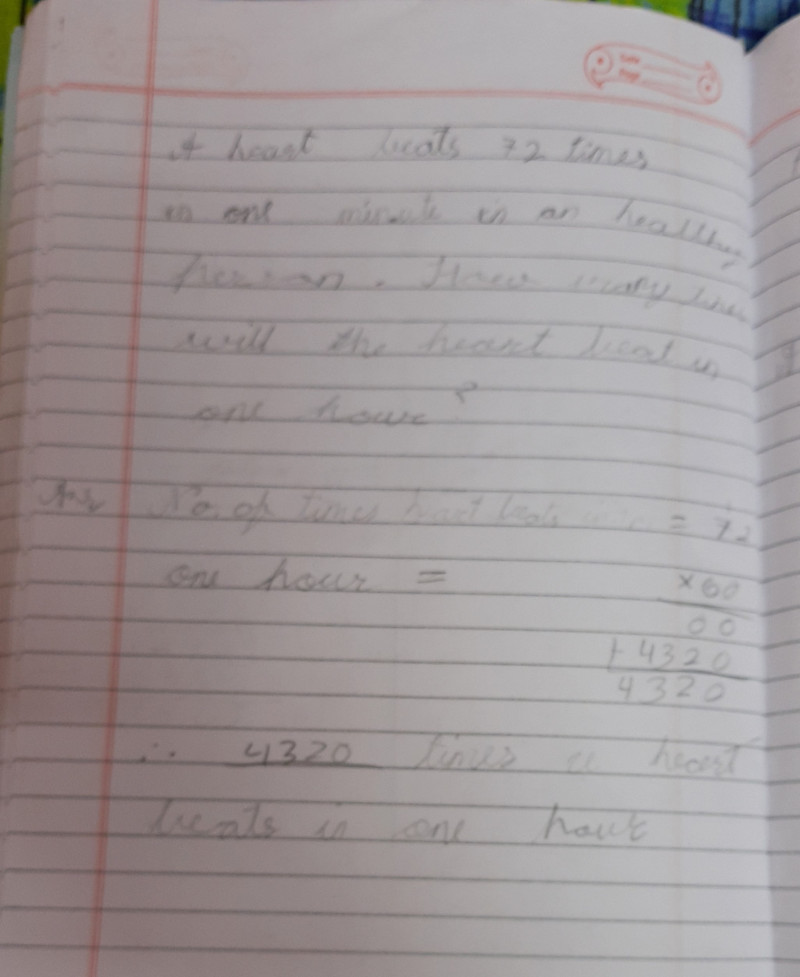 A heart beats 72 times
in one minute in an healthy
person. How many times
will the heart beat in
one hour?
Ans No. of times heart beats = 72
one hour = ×60
00
+4320
4320
∴ 4320 times a heart
beats in one hour